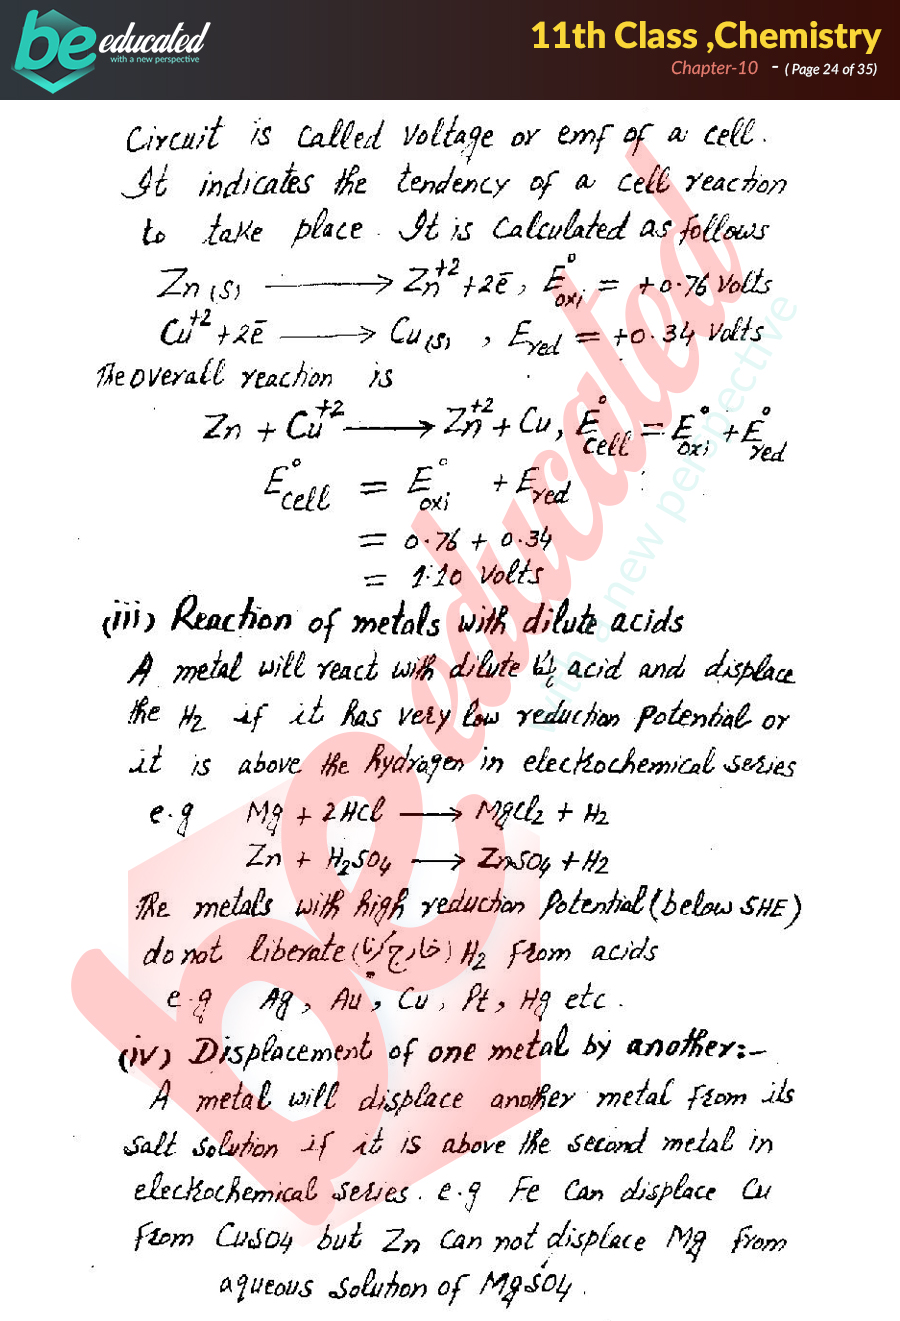 be educated
with a new perspective
11th Class ,Chemistry
Chapter-10 - ( Page 24 of 35)
Circuit is called voltage or emf of a cell.
It indicates the tendency of a cell reaction
to take place. It is calculated as follows
Zn(s) ⟶ Zn⁺² + 2ē, E°oxi = +0.76 Volts
Cu⁺² + 2ē ⟶ Cu(s), Ered = +0.34 Volts
The overall reaction is
Zn + Cu⁺² ⟶ Zn⁺² + Cu, E°cell = E°oxi + E°red
E°cell = E°oxi + Ered
= 0.76 + 0.34
= 1.10 Volts
(iii) Reaction of metals with dilute acids
A metal will react with dilute acid and displace
the H₂ if it has very low reduction potential or
it is above the hydrogen in electrochemical series
e.g Mg + 2HCl ⟶ MgCl₂ + H₂
Zn + H₂SO₄ ⟶ ZnSO₄ + H₂
The metals with high reduction potential (below SHE)
do not liberate (خارج کرنا) H₂ from acids
e.g Ag, Au, Cu, Pt, Hg etc.
(iv) Displacement of one metal by another:-
A metal will displace another metal from its
salt solution if it is above the second metal in
electrochemical series. e.g Fe can displace Cu
from CuSO₄ but Zn can not displace Mg from
aqueous solution of MgSO₄.
be educated
with a new perspective